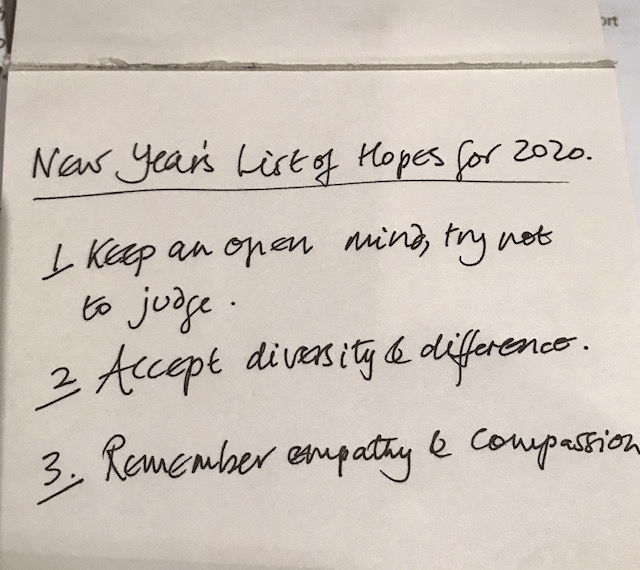 ort
New Year's List of Hopes for 2020.
1 Keep an open mind, try not
to judge.
2 Accept diversity & difference.
3. Remember empathy & Compassion